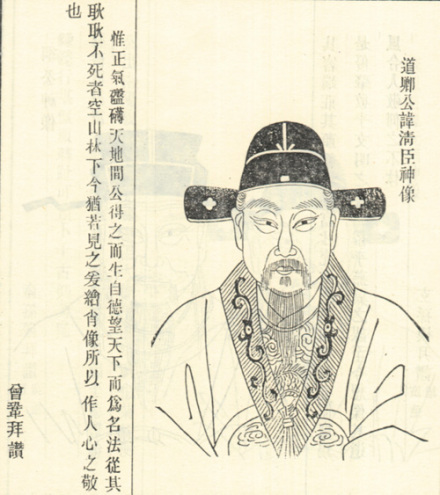 道鄉公諱淸臣神像
惟正氣磅礴天地間公得之而生自德望天下而爲名法從其
耿耿不死者空山林下今猶若見之爰繪肖像所以 作人心之敬
也
曾鞏拜讚